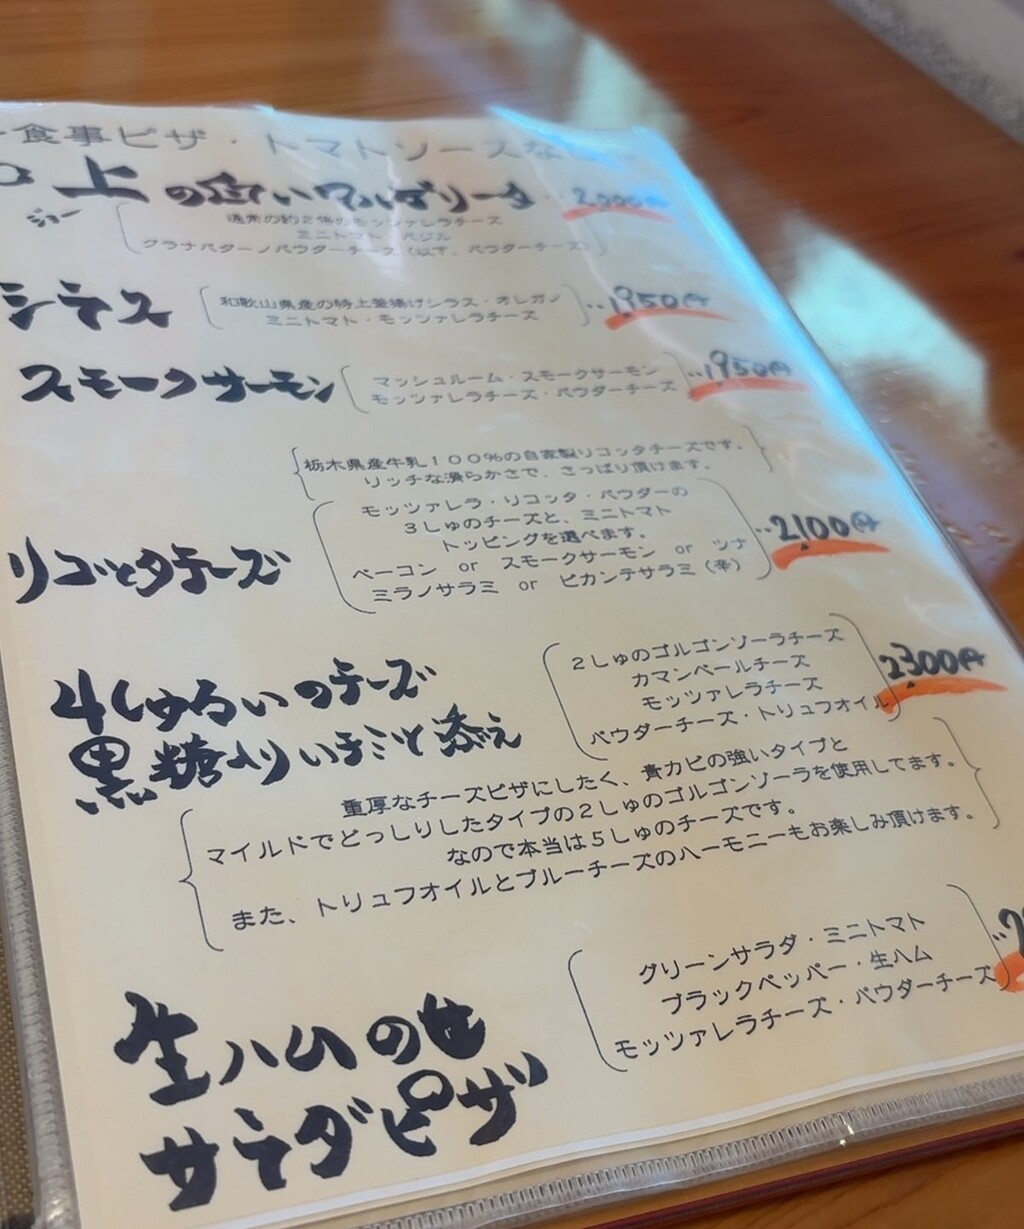 食事ピザ・トマトソースな
上の白いマルゲリータ‥
ジョー
通常の約2倍のモッツァレラチーズ
ミニトマト・バジル
グラナパダーノパウダーチーズ（以下、パウダーチーズ）
シラス
和歌山県産の特上釜揚げシラス・オレガノ
ミニトマト・モッツァレラチーズ
‥1950円
スモークサーモン
マッシュルーム・スモークサーモン
モッツァレラチーズ・パウダーチーズ
‥1950円
栃木県産牛乳１００％の自家製リコッタチーズです。
リッチな滑らかさで、さっぱり頂けます。
リコッタチーズ
モッツァレラ・リコッタ・パウダーの
３しゅのチーズと、ミニトマト
トッピングを選べます。
ベーコン or スモークサーモン or ツナ
ミラノサラミ or ピカンテサラミ（辛）
‥2100円
4しゅるいのチーズ
黒糖よりいチミツと添え
２しゅのゴルゴンゾーラチーズ
カマンベールチーズ
モッツァレラチーズ
パウダーチーズ・トリュフオイル
2300円
重厚なチーズピザにしたく、青カビの強いタイプと
マイルドでどっしりしたタイプの２しゅのゴルゴンゾーラを使用してます。
なので本当は５しゅのチーズです。
また、トリュフオイルとブルーチーズのハーモニーもお楽しみ頂けます。
生ハムの
サラダピザ
グリーンサラダ・ミニトマト
ブラックペッパー・生ハム
モッツァレラチーズ・パウダーチーズ